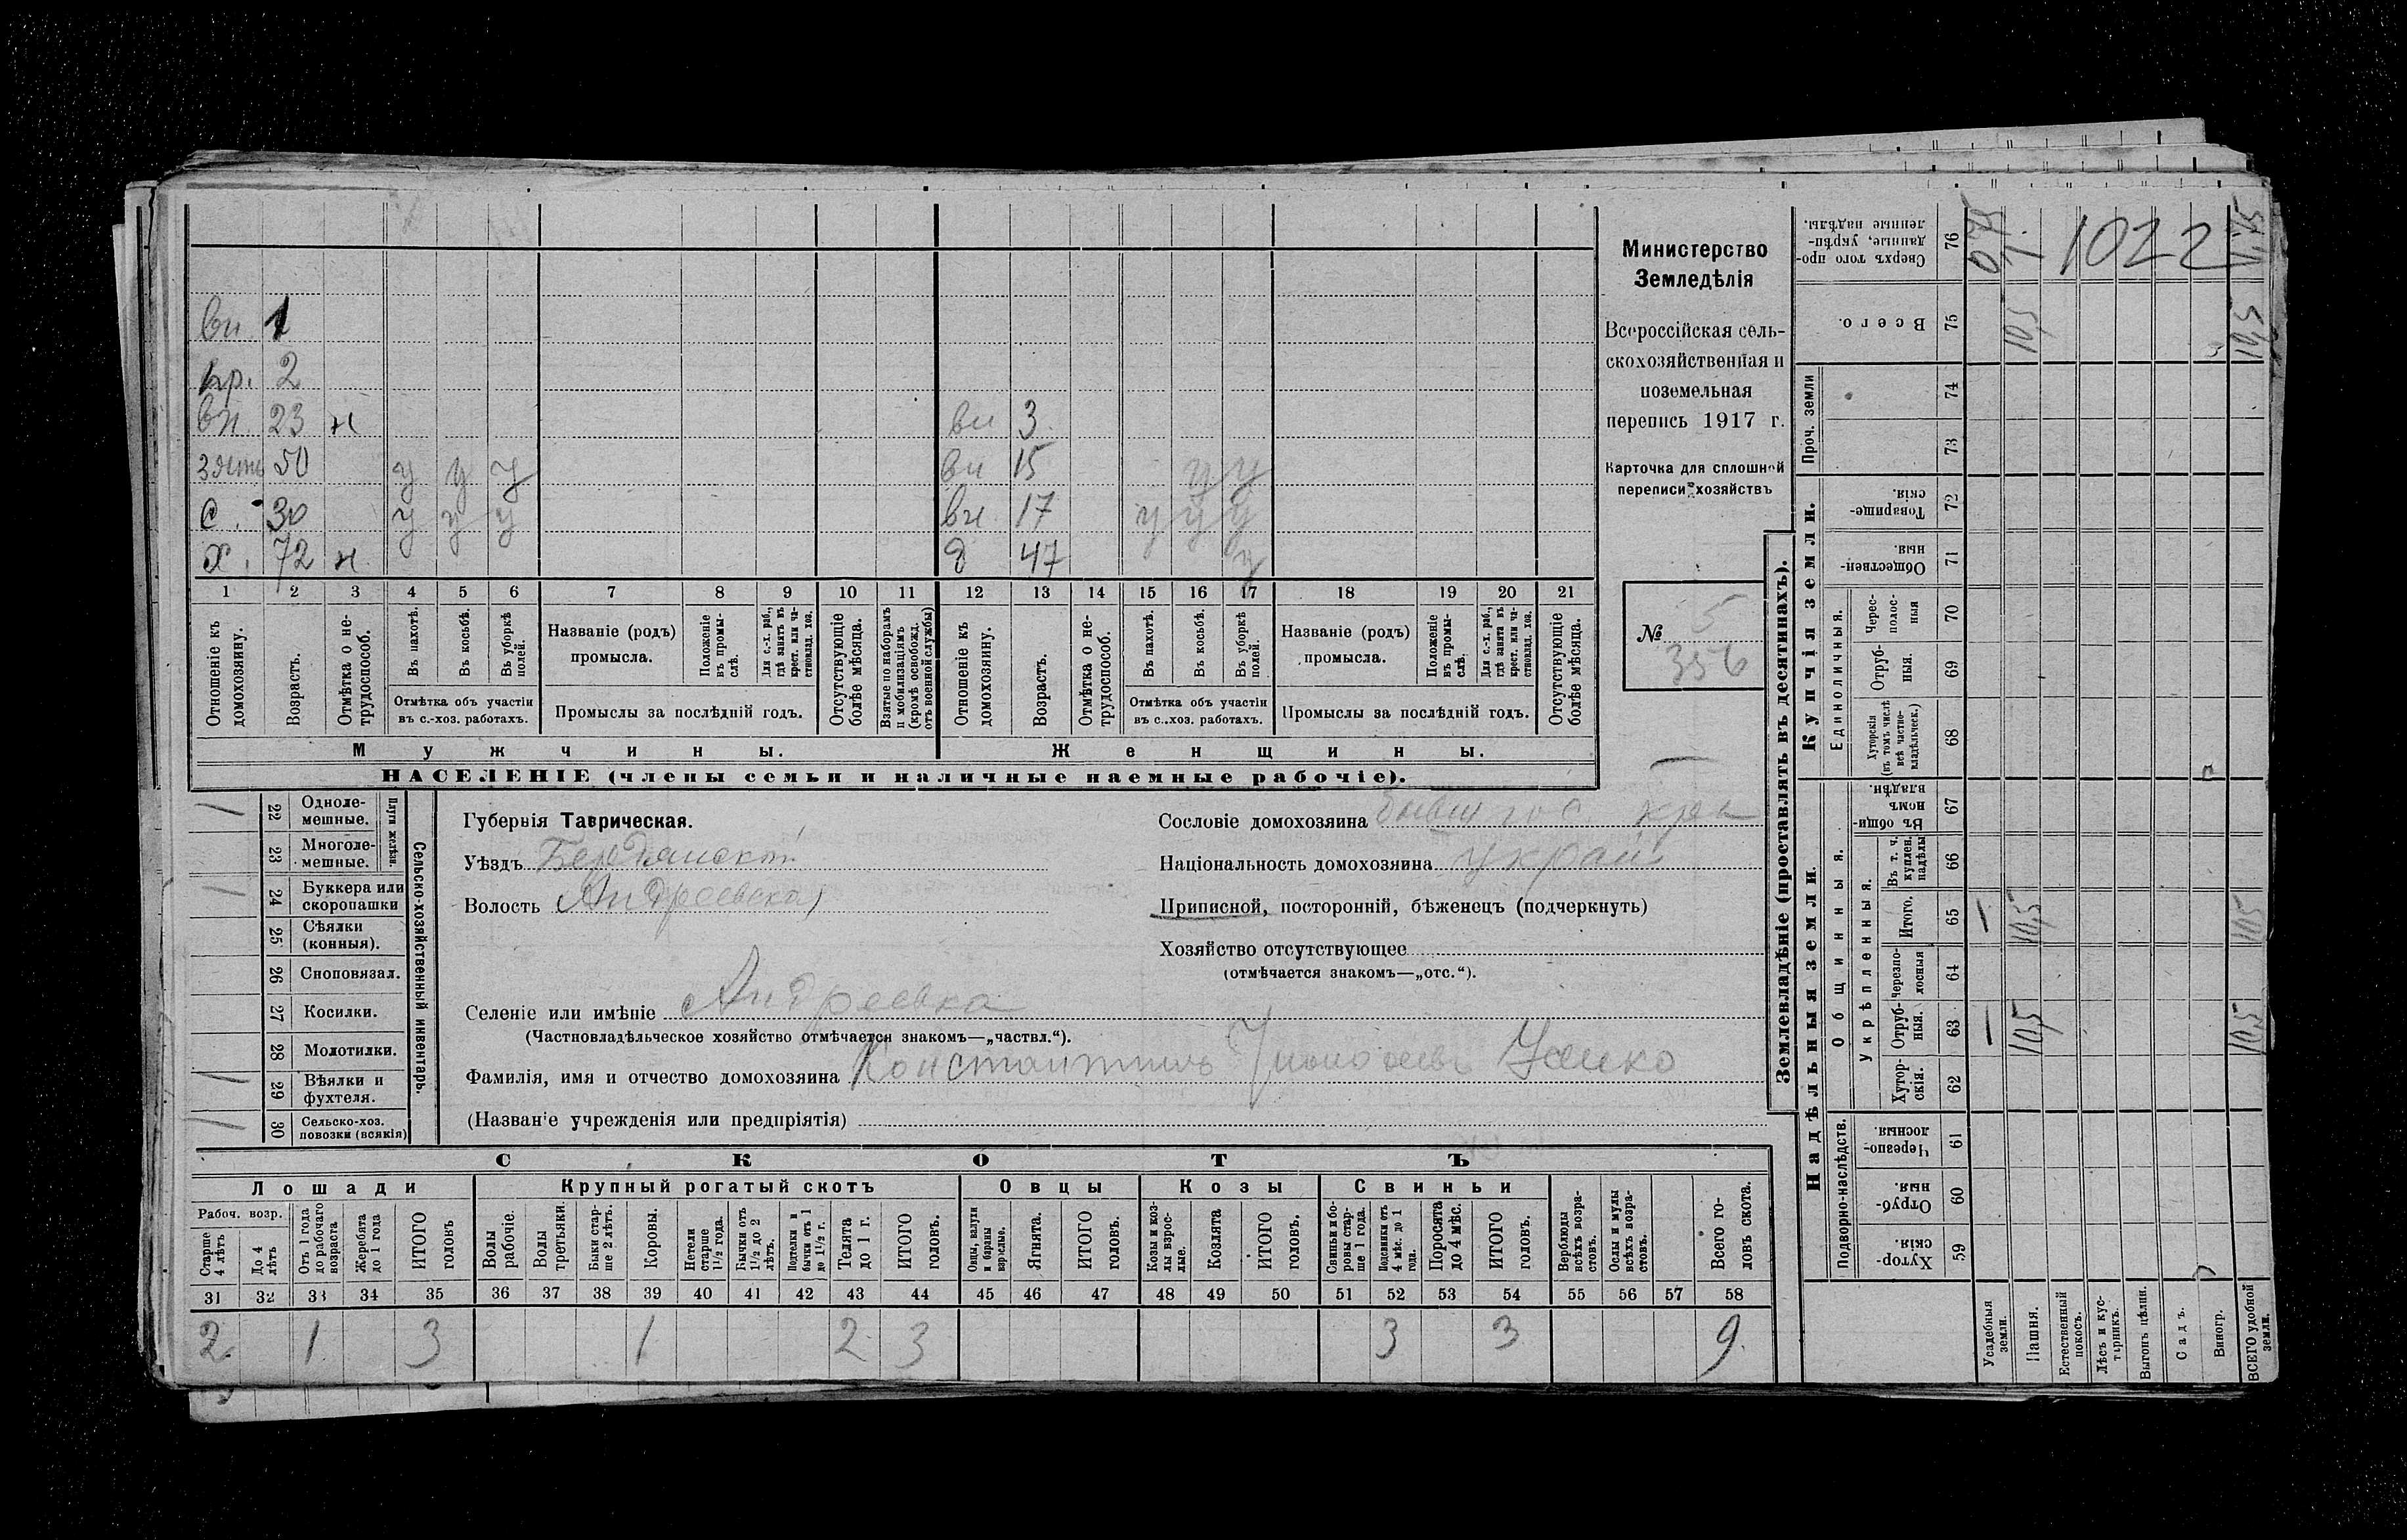 вн. 1
пр. 2
вн. 23 н
вн 3
зять 50 у у у
вн 15 у у
с. 30 у у у
вн. 17 у у у
х. 72 н
д 47 у
1 2 3 4 5 6 7 8 9 10 11 12 13 14 15 16 17 18 19 20 21
Отношеніе къ домохозяину.
Возрастъ.
Отмѣтка о не-
трудоспособ.
Въ пахотѣ.
Въ косьбѣ.
Въ уборкѣ полей.
Отмѣтка объ участіи
въ с.-хоз. работахъ.
Названіе (родъ)
промысла.
Положеніе въ промы-
слѣ.
Для с.-х. раб.,
гдѣ занятъ въ
крест. или ча-
стновлад. хоз.
Промыслы за послѣдній годъ.
Отсутствующіе
болѣе мѣсяца.
Взятые по наборамъ
и мобилизаціямъ
(кромѣ освобожд.
отъ военной службы)
Отношеніе къ
домохозяину.
Возрастъ.
Отмѣтка о не-
трудоспособ.
Въ пахотѣ.
Въ косьбѣ.
Въ уборкѣ
полей.
Отмѣтка объ участіи
въ с.-хоз. работахъ.
Названіе (родъ)
промысла.
Положеніе
въ промы-
слѣ.
Для с.-х. раб.,
гдѣ занята въ
крест. или ча-
стновлад. хоз.
Промыслы за послѣдній годъ.
Отсутствующіе
болѣе мѣсяца.
Мужчины.
Женщины.
НАСЕЛЕНІЕ (члены семьи и наличные наемные рабочіе).
Министерство
Земледѣлія
Всероссійская сель-
скохозяйственная и
поземельная
перепись 1917 г.
Карточка для сплошной
переписи хозяйствъ
№ 5
356
22 Одноле-
мешные.
23 Многоле-
мешные.
Плуги желѣзн.
24 Буккера или
скоропашки
25 Сѣялки
(конныя).
26 Сноповязал.
27 Косилки.
28 Молотилки.
29 Вѣялки и
фухтеля.
30 Сельско-хоз.
повозки (всякія)
Сельско-хозяйственный инвентарь.
Губернія Таврическая.
Уѣздъ Бердянскій
Волость Андреевская
Селеніе или имѣніе Андреевка
(Частновладѣльческое хозяйство отмѣчается знакомъ—„частвл.“).
Фамилія, имя и отчество домохозяина Константинъ
(Названіе учрежденія или предпріятія)
Сословіе домохозяина бывш гос. крес
Національность домохозяина украи
Приписной, посторонній, бѣженецъ (подчеркнуть)
Хозяйство отсутствующее
(отмѣчается знакомъ—„отс.“).
СКОТЪ
Лошади
Крупный рогатый скотъ
Овцы
Козы
Свиньи
Рабоч. возр.
Старше
4 лѣтъ
До 4
лѣтъ
Отъ 1 года
до рабочаго
возраста
Жеребята
до 1 года
ИТОГО
головъ
Волы
рабочіе.
Волы
третьяки.
Быки стар-
ше 2 лѣтъ.
Коровы.
Нетели
старше
1½ года.
Бычки отъ
1½ до 2
лѣтъ.
Подтелки и
бычки отъ 1
до 1½ г.
Телята
до 1 г.
ИТОГО
головъ.
Овцы, валухи
и бараны
взрослые.
Ягнята.
ИТОГО
головъ.
Козы и коз-
лы взрос-
лые.
Козлята
ИТОГО
головъ.
Свиньи и бо-
ровы стар-
ше 1 года.
Подсвинки отъ
4 мѣс. до 1
года.
Поросята
до 4 мѣс.
ИТОГО
головъ.
Верблюды
всѣхъ возра-
стовъ.
Ослы и мулы
всѣхъ возра-
стовъ.
Всего го-
ловъ скота.
31 32 33 34 35 36 37 38 39 40 41 42 43 44 45 46 47 48 49 50 51 52 53 54 55 56 57 58
2 1 3 1 2 3 3 3 9
Землевладѣніе (проставлять въ десятинахъ).
Надѣльныя земли.
Купчія земли.
Проч. земли
Подворно-наслѣдств.
Общинныя.
Укрѣпленныя.
Единоличныя.
Хутор-
скія. 59
Отруб-
ныя. 60
Черезпо-
лосныя. 61
Хутор-
скія. 62
Отруб-
ныя. 63
Черезпо-
лосныя 64
Итого. 65
Въ т. ч.
куплен.
надѣлы 66
Въ общин-
номъ
владѣн. 67
Хуторскія
(въ томъ числѣ
всѣ частно-
владѣльческ.) 68
Отруб-
ныя. 69
Черес-
полос-
ныя 70
Обществен-
ныя. 71
Товарище-
скія. 72
73
74
Всего. 75
Сверхъ того про-
данные, укрѣп-
ленные надѣлы. 76
Усадебныя
земли.
Пашня.
Естественный
покосъ.
Лѣсъ и кус-
тарникъ.
Выгонъ цѣлин.
Садъ.
Виногр.
ВСЕГО удобной
земли.
10,5
10,5
10,5
10,5
10,5
10,5
0,75
1022